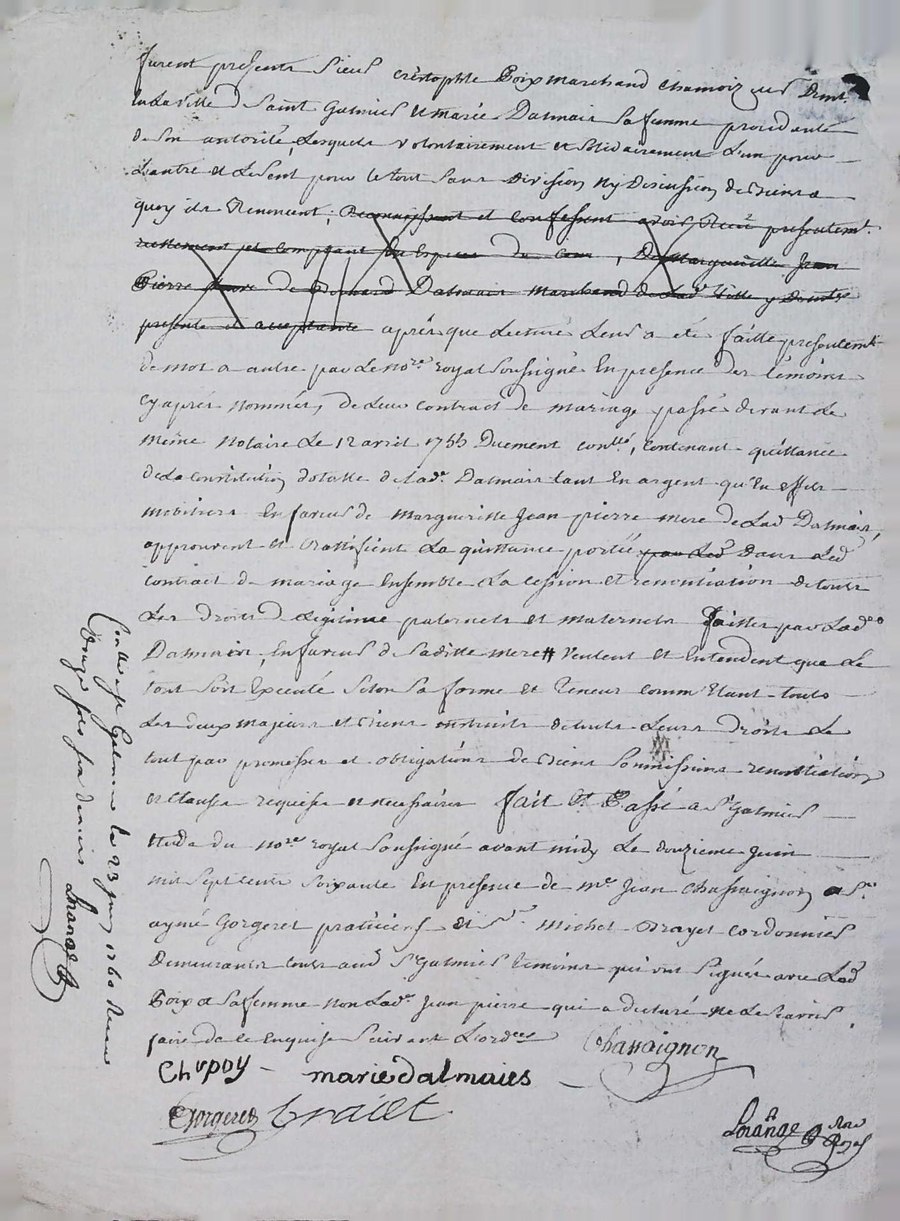 furent presents Sieur Crestophle Poix marchand chamoizeur demt.
en la ville de Saint Galmier et marie Dalmais sa femme procedante
de son autorité, Lesquels volontairement et solidairement L'un pour
L'autre et Le seul pour le tout sans Division ny Discussion de biens a
quoy ils Renoncent, Reconnoissent et confessent avoir Receu presentemt.
reellement et comptant En Especes du Cours, De Margueritte Jean
Pierre veuve de Dalmais Marchand de Lad. Ville y Demte.
presente et acceptante après que Lecture Leur a été faitte presentemt.
de mot a autre par Le nore. royal soussigné En presence des temoins
cy après nommés, de Leur contract de mariage passé devant Le
même notaire Le 12 avril 1755 Duement conllé, contenant quittance
de La constitution dotalle de Lade. Dalmais tant en argent qu'En effets
mobiliers En faveur de Margueritte Jean pierre mere de Lad. Dalmais,
approuvent et Rattifient La quittance portée par Led. Dans Led.
contract de mariage Ensemble La cession et renontiation de tous
Les droits de Legitime paternels et maternels faitte par Lade.
Dalmais, En faveur de Saditte mere # veulent et entendent que Le
tout soit Executé selon sa forme et teneur comm'Etant touts
Les deux majeurs et biens instruits de touts Leurs droits Le
tout par promesses et obligations de biens soumissions renontiations
et clauses requises et necessaires fait Et Passé a St. Galmier
Etude du nore. royal soussigné avant midy Le douzieme Juin
mil sept cents soixante En presence de me. Jean Chassaignon et Sr.
aymé Gorgeret praticiens et Sr. Michel Brayet Cordonnier
Demeurants touts aud. St. Galmier temoins qui ont signés avec Led.
Poix et sa femme non Lade. Jean pierre qui a declaré ne Le scavoir
faire de ce Enquise suivant L'ordce.
Chassaignon
Chr poy – marie dalmaies
Gorgeret Braiet
Lorange Nore Royal
Conllé a St Galmier le 23 juin 1760 Receu
douze sols six deniers Lorange